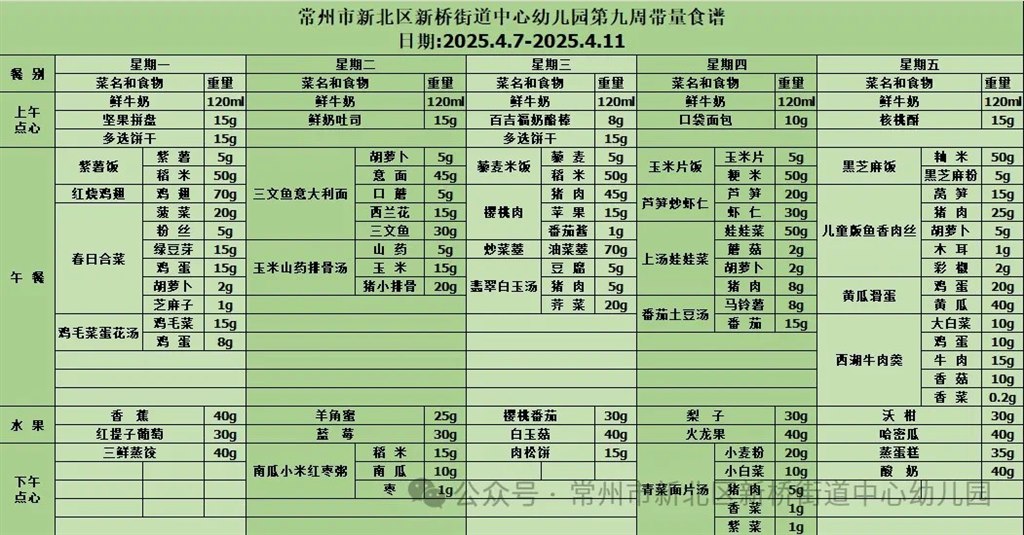 常州市新北区新桥街道中心幼儿园第九周带量食谱
日期:2025.4.7-2025.4.11
餐 别 星期一 星期二 星期三 星期四 星期五
菜名和食物 重量 菜名和食物 重量 菜名和食物 重量 菜名和食物 重量 菜名和食物 重量
上午点心 鲜牛奶 120ml 鲜牛奶 120ml 鲜牛奶 120ml 鲜牛奶 120ml 鲜牛奶 120ml
坚果拼盘 15g 鲜奶吐司 15g 百吉福奶酪棒 8g 口袋面包 10g 核桃酥 15g
多选饼干 15g 多选饼干 15g
午 餐 紫薯饭 紫 薯 5g 三文鱼意大利面 胡萝卜 5g 藜麦米饭 藜 麦 5g 玉米片饭 玉米片 5g 黑芝麻饭 籼 米 50g
稻 米 50g 意 面 45g 稻 米 50g 粳 米 50g 黑芝麻粉 5g
红烧鸡翅 鸡 翅 70g 口 蘑 5g 樱桃肉 猪 肉 45g 芦笋炒虾仁 芦 笋 20g 儿童版鱼香肉丝 莴 笋 15g
春日合菜 菠 菜 20g 西兰花 15g 苹 果 15g 虾 仁 30g 猪 肉 25g
粉 丝 5g 三文鱼 30g 番茄酱 1g 上汤娃娃菜 娃娃菜 50g 胡萝卜 5g
绿豆芽 15g 玉米山药排骨汤 山 药 5g 炒菜薹 油菜薹 70g 蘑 菇 2g 木 耳 1g
鸡 蛋 15g 玉 米 15g 翡翠白玉汤 豆 腐 5g 胡萝卜 2g 彩 椒 2g
胡萝卜 2g 猪小排骨 20g 猪 肉 5g 猪 肉 8g 黄瓜滑蛋 鸡 蛋 20g
芝麻子 1g 荠 菜 20g 番茄土豆汤 马铃薯 8g 黄 瓜 40g
鸡毛菜蛋花汤 鸡毛菜 15g 番 茄 15g 西湖牛肉羹 大白菜 10g
鸡 蛋 8g 鸡 蛋 10g
牛 肉 15g
香 菇 10g
香 菜 0.2g
水 果 香 蕉 40g 羊角蜜 25g 樱桃番茄 30g 梨 子 30g 沃 柑 30g
红提子葡萄 30g 蓝 莓 30g 白玉菇 40g 火龙果 40g 哈密瓜 40g
下午点心 三鲜蒸饺 40g 南瓜小米红枣粥 稻 米 15g 肉松饼 15g 青菜面片汤 小麦粉 20g 蒸蛋糕 35g
南 瓜 10g 小白菜 10g 酸 奶 40g
枣 1g 猪 肉 5g
香 菜 1g
紫 菜 1g
公众号 · 常州市新北区新桥街道中心幼儿园